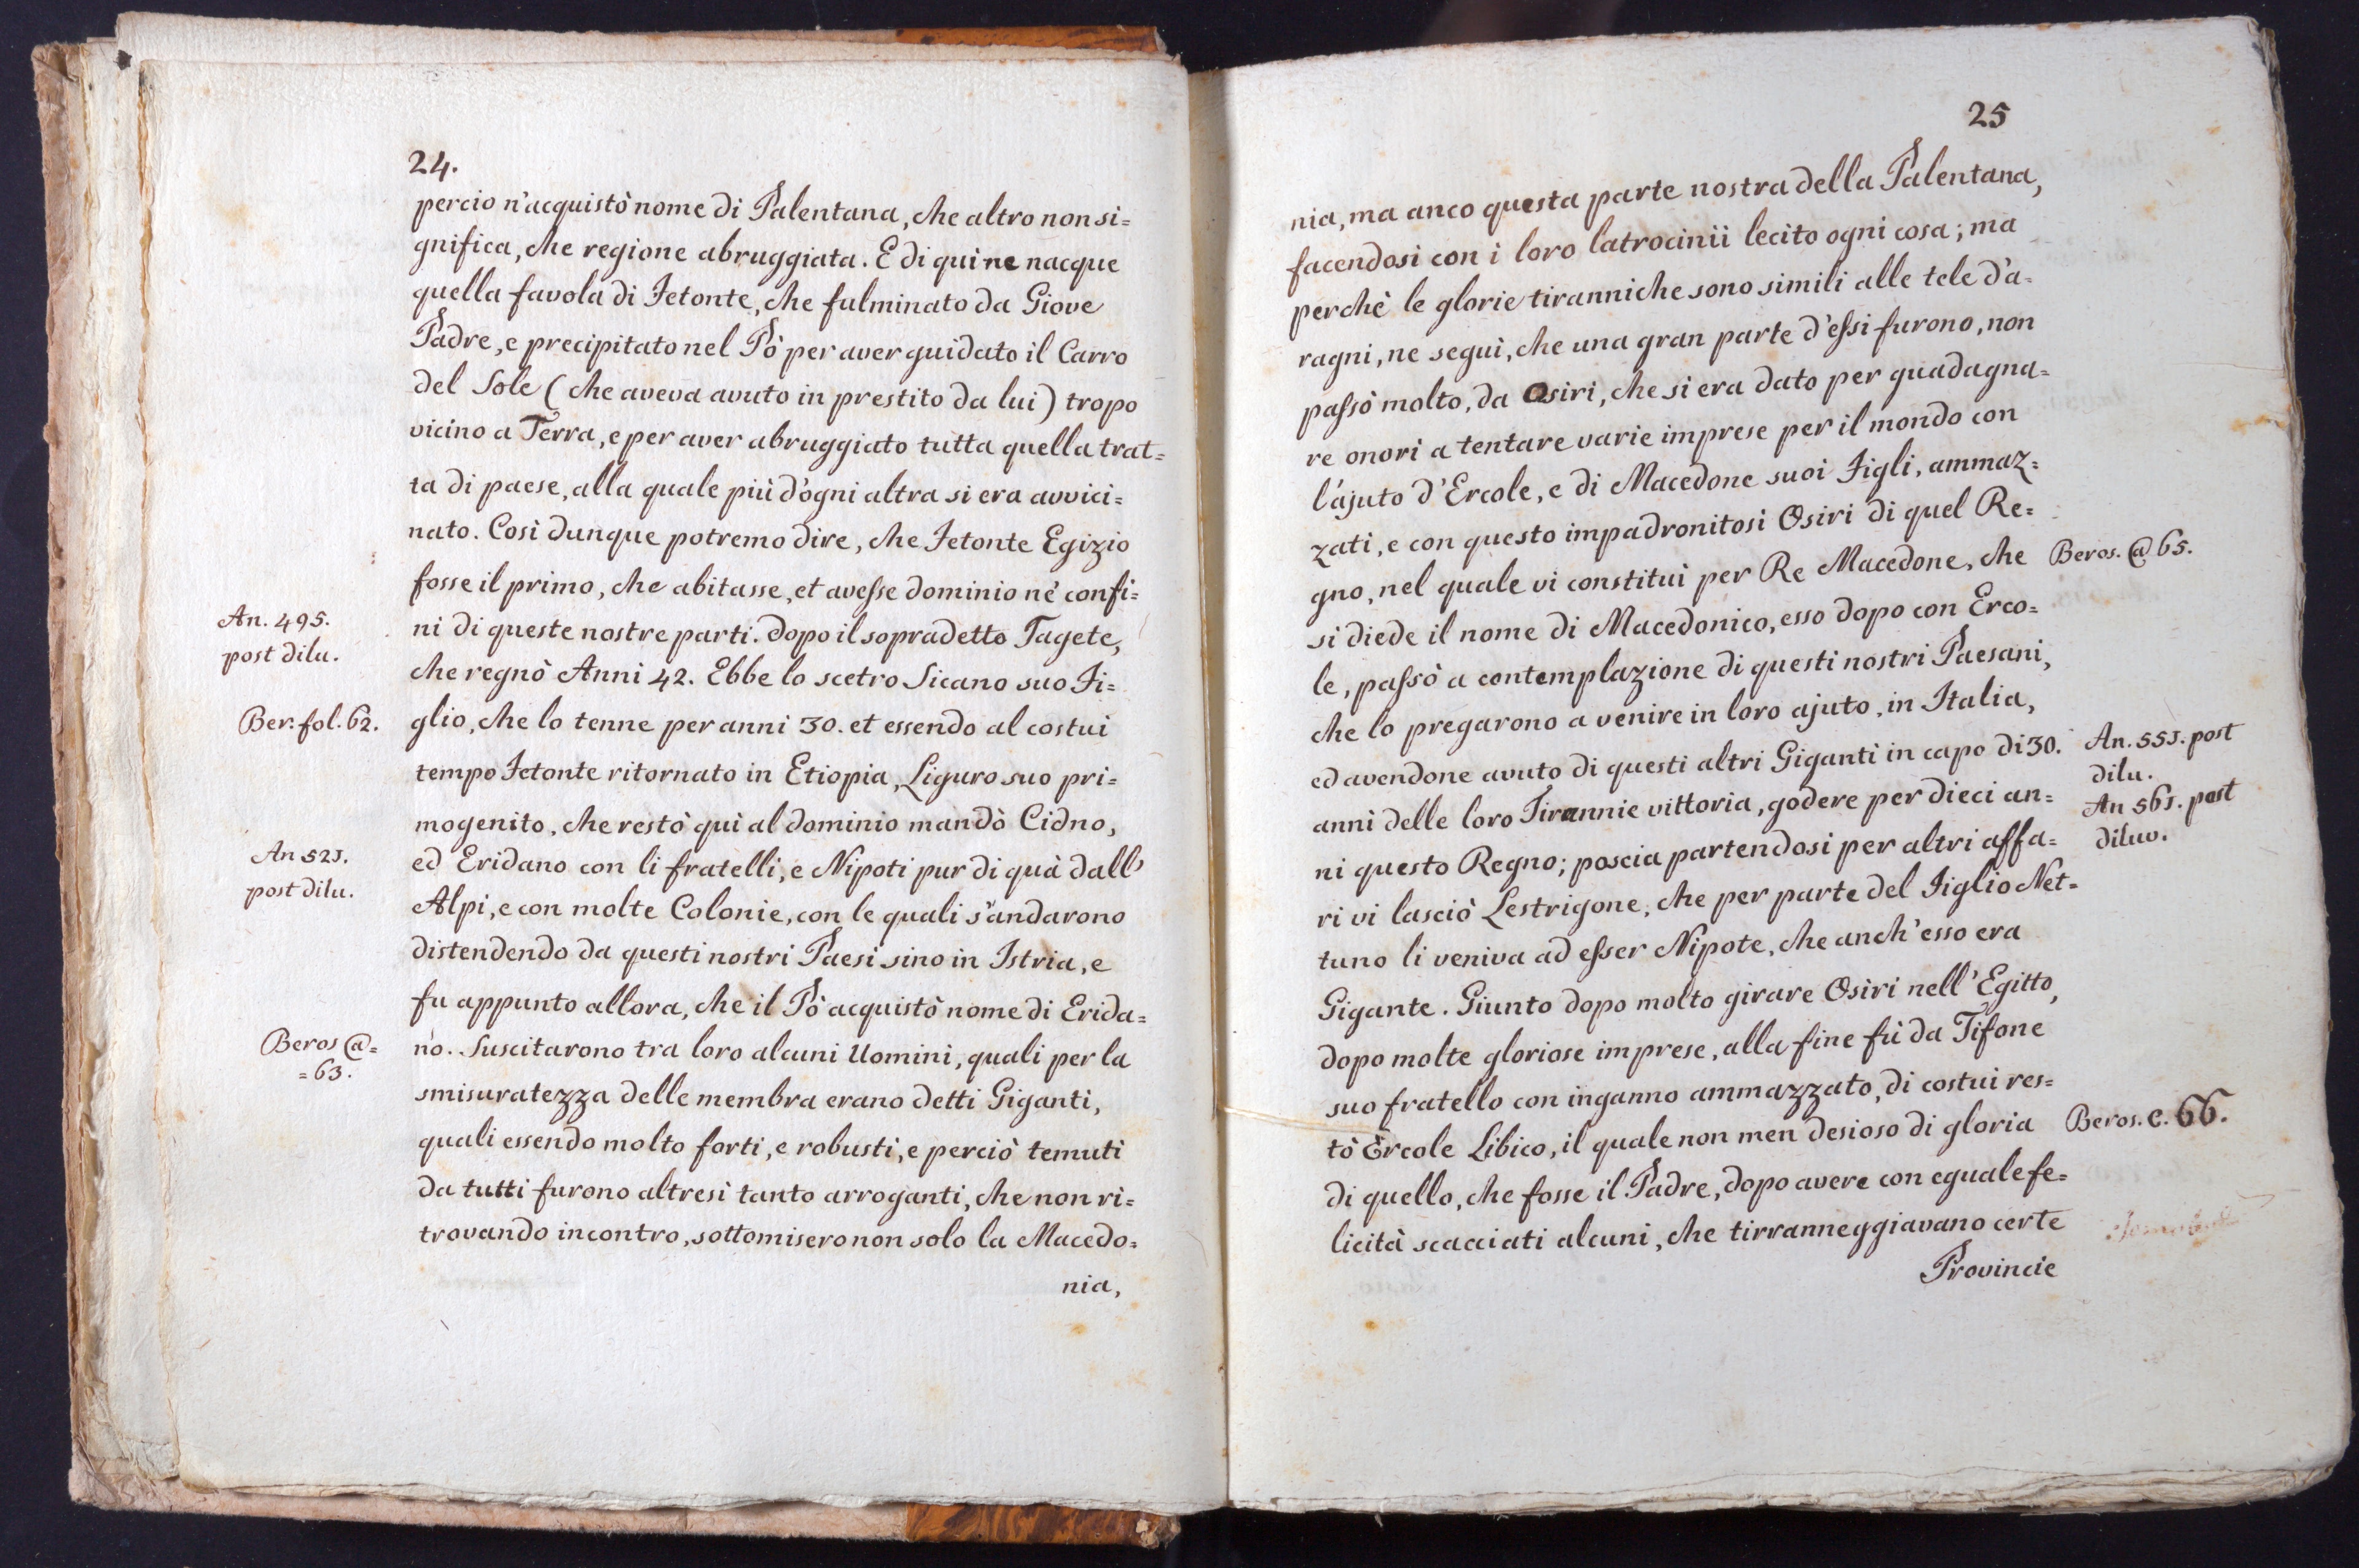 24.
percio n'acquistò nome di Palentana, che altro non si=
gnifica, che regione abruggiata. E di qui ne nacque
quella favola di Fetonte, che fulminato da Giove
Padre, e precipitato nel Pò per aver guidato il Carro
del Sole (che aveva avuto in prestito da lui) tropo
vicino a Terra, e per aver abruggiato tutta quella trat=
ta di paese, alla quale più d'ogni altra si era avvici=
nato. Così dunque potremo dire, che Fetonte Egizio
fosse il primo, che abitasse, et avesse dominio ne' confi=
An. 495.
post dilu.
ni di queste nostre parti. Dopo il sopradetto Tagete,
che regnò Anni 42. Ebbe lo scetro Sicano suo Fi=
Ber. fol. 62.
glio, che lo tenne per anni 30. et essendo al costui
tempo Fetonte ritornato in Etiopia, Liguro suo pri=
mogenito, che restò quì al dominio mandò Cidno,
An 521.
post dilu.
ed Eridano con li fratelli, e Nipoti pur di quà dall'
Alpi, e con molte Colonie, con le quali s'andarono
distendendo da questi nostri Paesi sino in Istria, e
fu appunto allora, che il Pò acquistò nome di Erida=
Beros @=
=63.
no. Suscitarono tra loro alcuni Uomini, quali per la
smisuratezza delle membra erano detti Giganti,
quali essendo molto forti, e robusti, e perciò temuti
da tutti furono altresì tanto arroganti, che non ri=
trovando incontro, sottomisero non solo la Macedo=
nia,
25
nia, ma anco questa parte nostra della Palentana,
facendosi con i loro latrocinii lecito ogni cosa; ma
perchè le glorie tiranniche sono simili alle tele d'a=
ragni, ne seguì, che una gran parte d'essi furono, non
passò molto, da Osiri, che si era dato per guadagna=
re onori a tentare varie imprese per il mondo con
l'ajuto d'Ercole, e di Macedone suoi Figli, ammaz=
zati, e con questo impadronitosi Osiri di quel Re=
gno, nel quale vi constituì per Re Macedone, che
Beros. @ 65.
si diede il nome di Macedonico, esso dopo con Erco=
le, passò a contemplazione di questi nostri Paesani,
che lo pregarono a venire in loro ajuto, in Italia,
ed avendone avuto di questi altri Giganti in capo di 30.
An. 551. post
dilu.
anni delle loro Tirannie vittoria, godere per dieci an=
An 561. post
diluv.
ni questo Regno; poscia partendosi per altri affa=
ri vi lasciò Lestrigone, che per parte del Figlio Net=
tuno li veniva ad esser Nipote, che anch'esso era
Gigante. Giunto dopo molto girare Osiri nell'Egitto,
dopo molte gloriose imprese, alla fine fù da Tifone
suo fratello con inganno ammazzato, di costui res=
tò Ercole Libico, il quale non men desioso di gloria
Beros. c. 66.
di quello, che fosse il Padre, dopo avere con eguale fe=
licità scacciati alcuni, che tirranneggiavano certe
Provincie